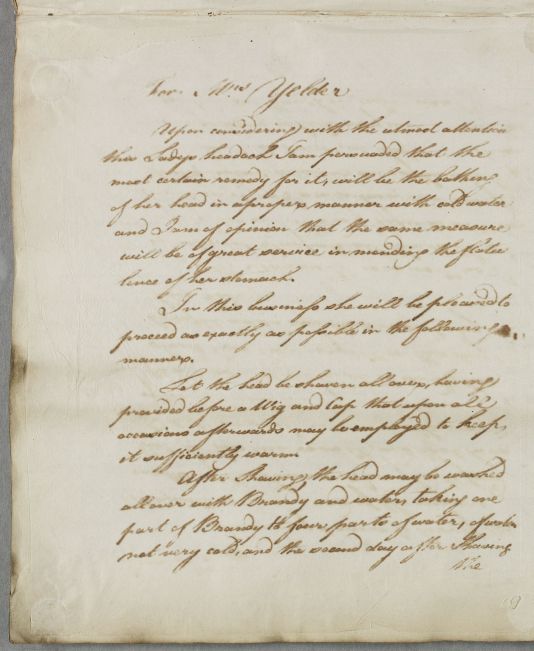 For Mrs Yelder
Upon considering with the utmost attention
this Ladys headach I am perswaded that the
most certain remedy for it, will be the bathing
of her head in a proper manner with cold water
and I am of opinion that the same measure
will be of great service in mending the flatu
lence of her stomach.
In this business she will be pleased to
proceed as exactly as possible in the following
manner.
Let the head be shaven all over, having
provided before a Wig and Cap that upon all
occasions afterwards may be employed to keep
it sufficiently warm
After Shaving the head may be washed
all over with Brandy and water, taking one
part of Brandy to four parts of water, of water
not very cold, and the second day after Shaving
the